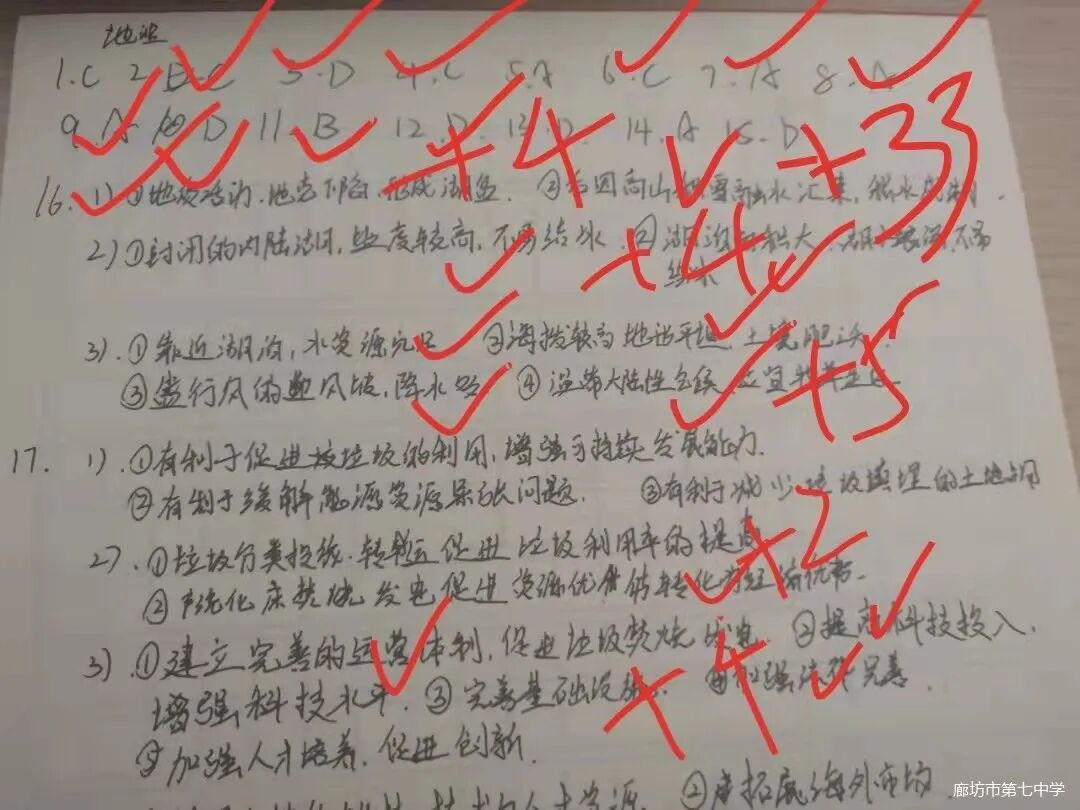 地理
1.C 2.B C 3.D 4.C 5.A 6.C 7.A 8.A
9.A 10 D 11.B 12.D 13.D 14.A 15.D
+4 +33
16. 1) ①地质活动,地壳下陷,形成湖盆. ②后因高山积雪融水汇集,
2) ①封闭的内陆湖,盐度较高,不易结冰. ②湖泊面积大,不易
结冰
+4
3). ①靠近湖泊,水资源充足 ②海拔较高 地形平坦,土壤肥沃.
③盛行风的迎风坡,降水多 ④温带大陆性气候,
+5
17. 1).①有利于促进垃圾的利用,增强可持续发展能力.
②有利于缓解能源资源紧张问题. ③有利于减少垃圾填埋的土地占用
+2
2). ①垃圾分类投放.转运促进垃圾利用率的提高
②焚烧发电促进资源优势转化为经济优势.
3).①建立完善的运营体制,促进垃圾焚烧发电. ②提高科技投入,
增强科技水平. ③完善基础设施. ④加强法律完善.
+4
⑤加强人才培养,促进创新.
技术与人才资源 ②拓展海外市场
廊坊市第七中学